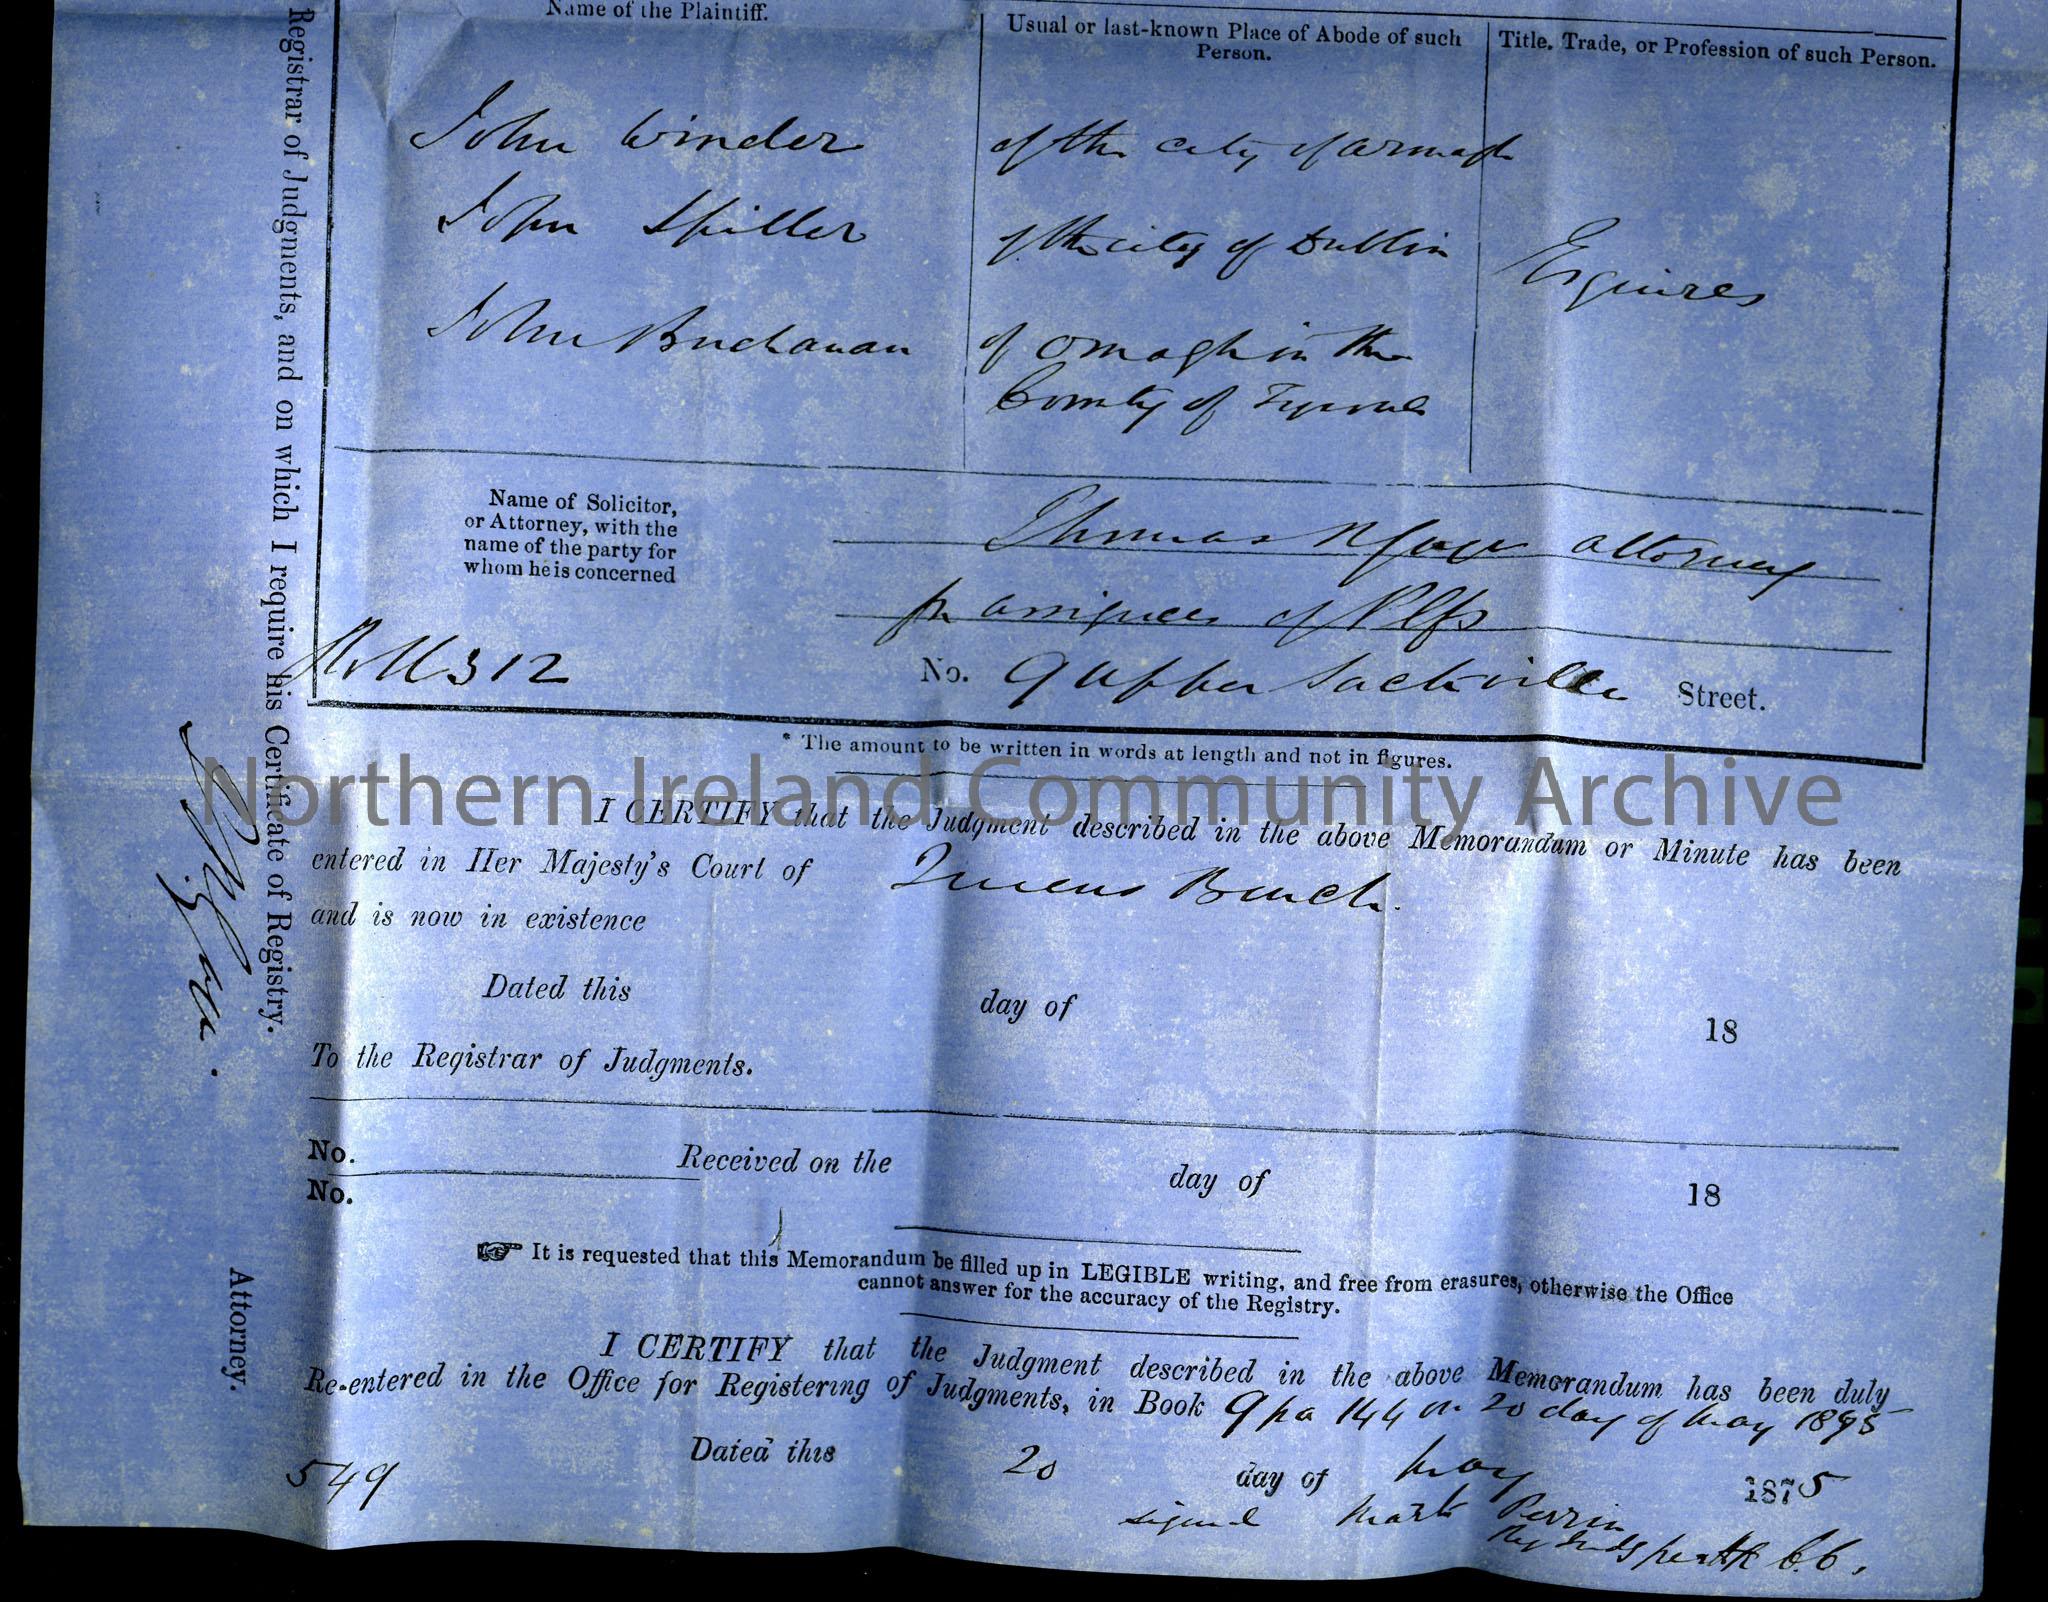 Name of the Plaintiff.
Usual or last-known Place of Abode of such Person.
Title, Trade, or Profession of such Person.
John Winder
of the city of Armagh
John Spiller
of the city of Dublin
Esquires
John Buchanan
of Omagh in the
County of Tyrone
Name of Solicitor,
or Attorney, with the
name of the party for
whom he is concerned
Thomas attorney
for assignees of Plfs
Roll 312
No. 9 Upper Sackville Street.
* The amount to be written in words at length and not in figures.
I CERTIFY that the Judgment described in the above Memorandum or Minute has been
entered in Her Majesty's Court of Queens Bench.
and is now in existence
Dated this day of 18
To the Registrar of Judgments.
No. Received on the day of 18
No.
It is requested that this Memorandum be filled up in LEGIBLE writing, and free from erasures, otherwise the Office
cannot answer for the accuracy of the Registry.
I CERTIFY that the Judgment described in the above Memorandum has been duly
Re-entered in the Office for Registering of Judgments, in Book 9 pa 144 on 20 day of May 1895
549
Dated this 20 day of May 1875
signed Mark Perrin
Reg Judgs
Registrar of Judgments, and on which I require his Certificate of Registry.
Attorney.
Northern Ireland Community Archive